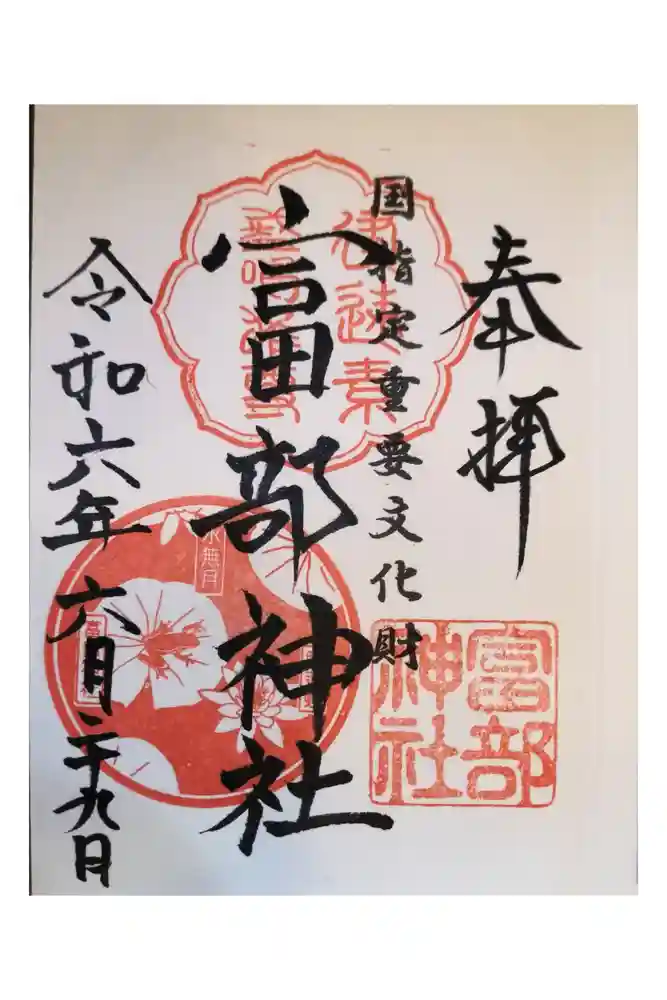 奉拝
国指定重要文化財
富部神社
令和六年六月二十九日
水無月
富部
神社